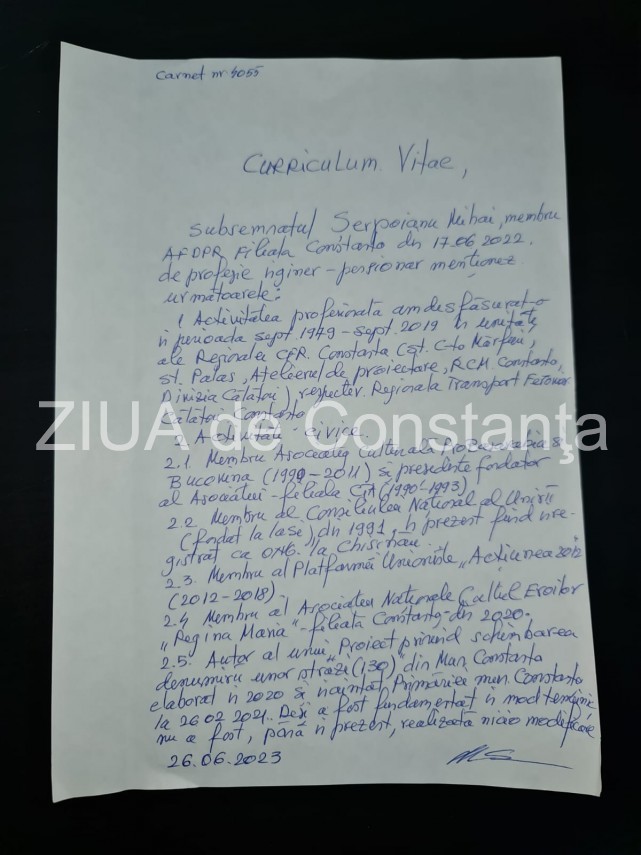 Carnet nr 4055
Curriculum Vitae,
Subsemnatul Serpoianu Mihai, membru
AFDPR Filiala Constanta din 17.06.2022,
de profesie inginer - pensionar menționez
următoarele:
1 Activitatea profesionala am desfăsurat-o
in perioada sept. 1979 - sept. 2019 in unitățile
ale Regionalei CFR. Constanta (st. C-ta Mărfuri,
st. Palas, Atelierul de proiectare, RCM. Constanta,
Divizia Călători) respectiv Regionala Transport Feroviar
Călători Constanta
ZIUA de Constanța
2. Activitati civice.
2.1. Membru Asociatia Culturala ProBasarabia și
Bucovina (1990-2011) si presedinte fondator
al Asociatiei - filiala CTA (1990-1993)
2.2 Membru al Consiliului National al Unirii
(fondat la Iasi) din 1991, in prezent fiind inre-
gistrat ca ONG. la Chisinau.
2.3. Membru al Platformei Unioniste „Acțiunea 2012
(2012-2018).
2.4 Membru al Asociatiei Nationale Cultul Eroilor
„Regina Maria" - filiala Constanta din 2020.
2.5. Autor al unui „Proiect privind schimbarea
denumirii unor străzi (130)" din Mun. Constanta
elaborat in 2020 si inaintat Primăriei mun. Constanta
la 26.02.2021. Desi a fost fundamentat in mod temeinic
nu a fost, până in prezent, realizată nicio modificare
26.06.2023